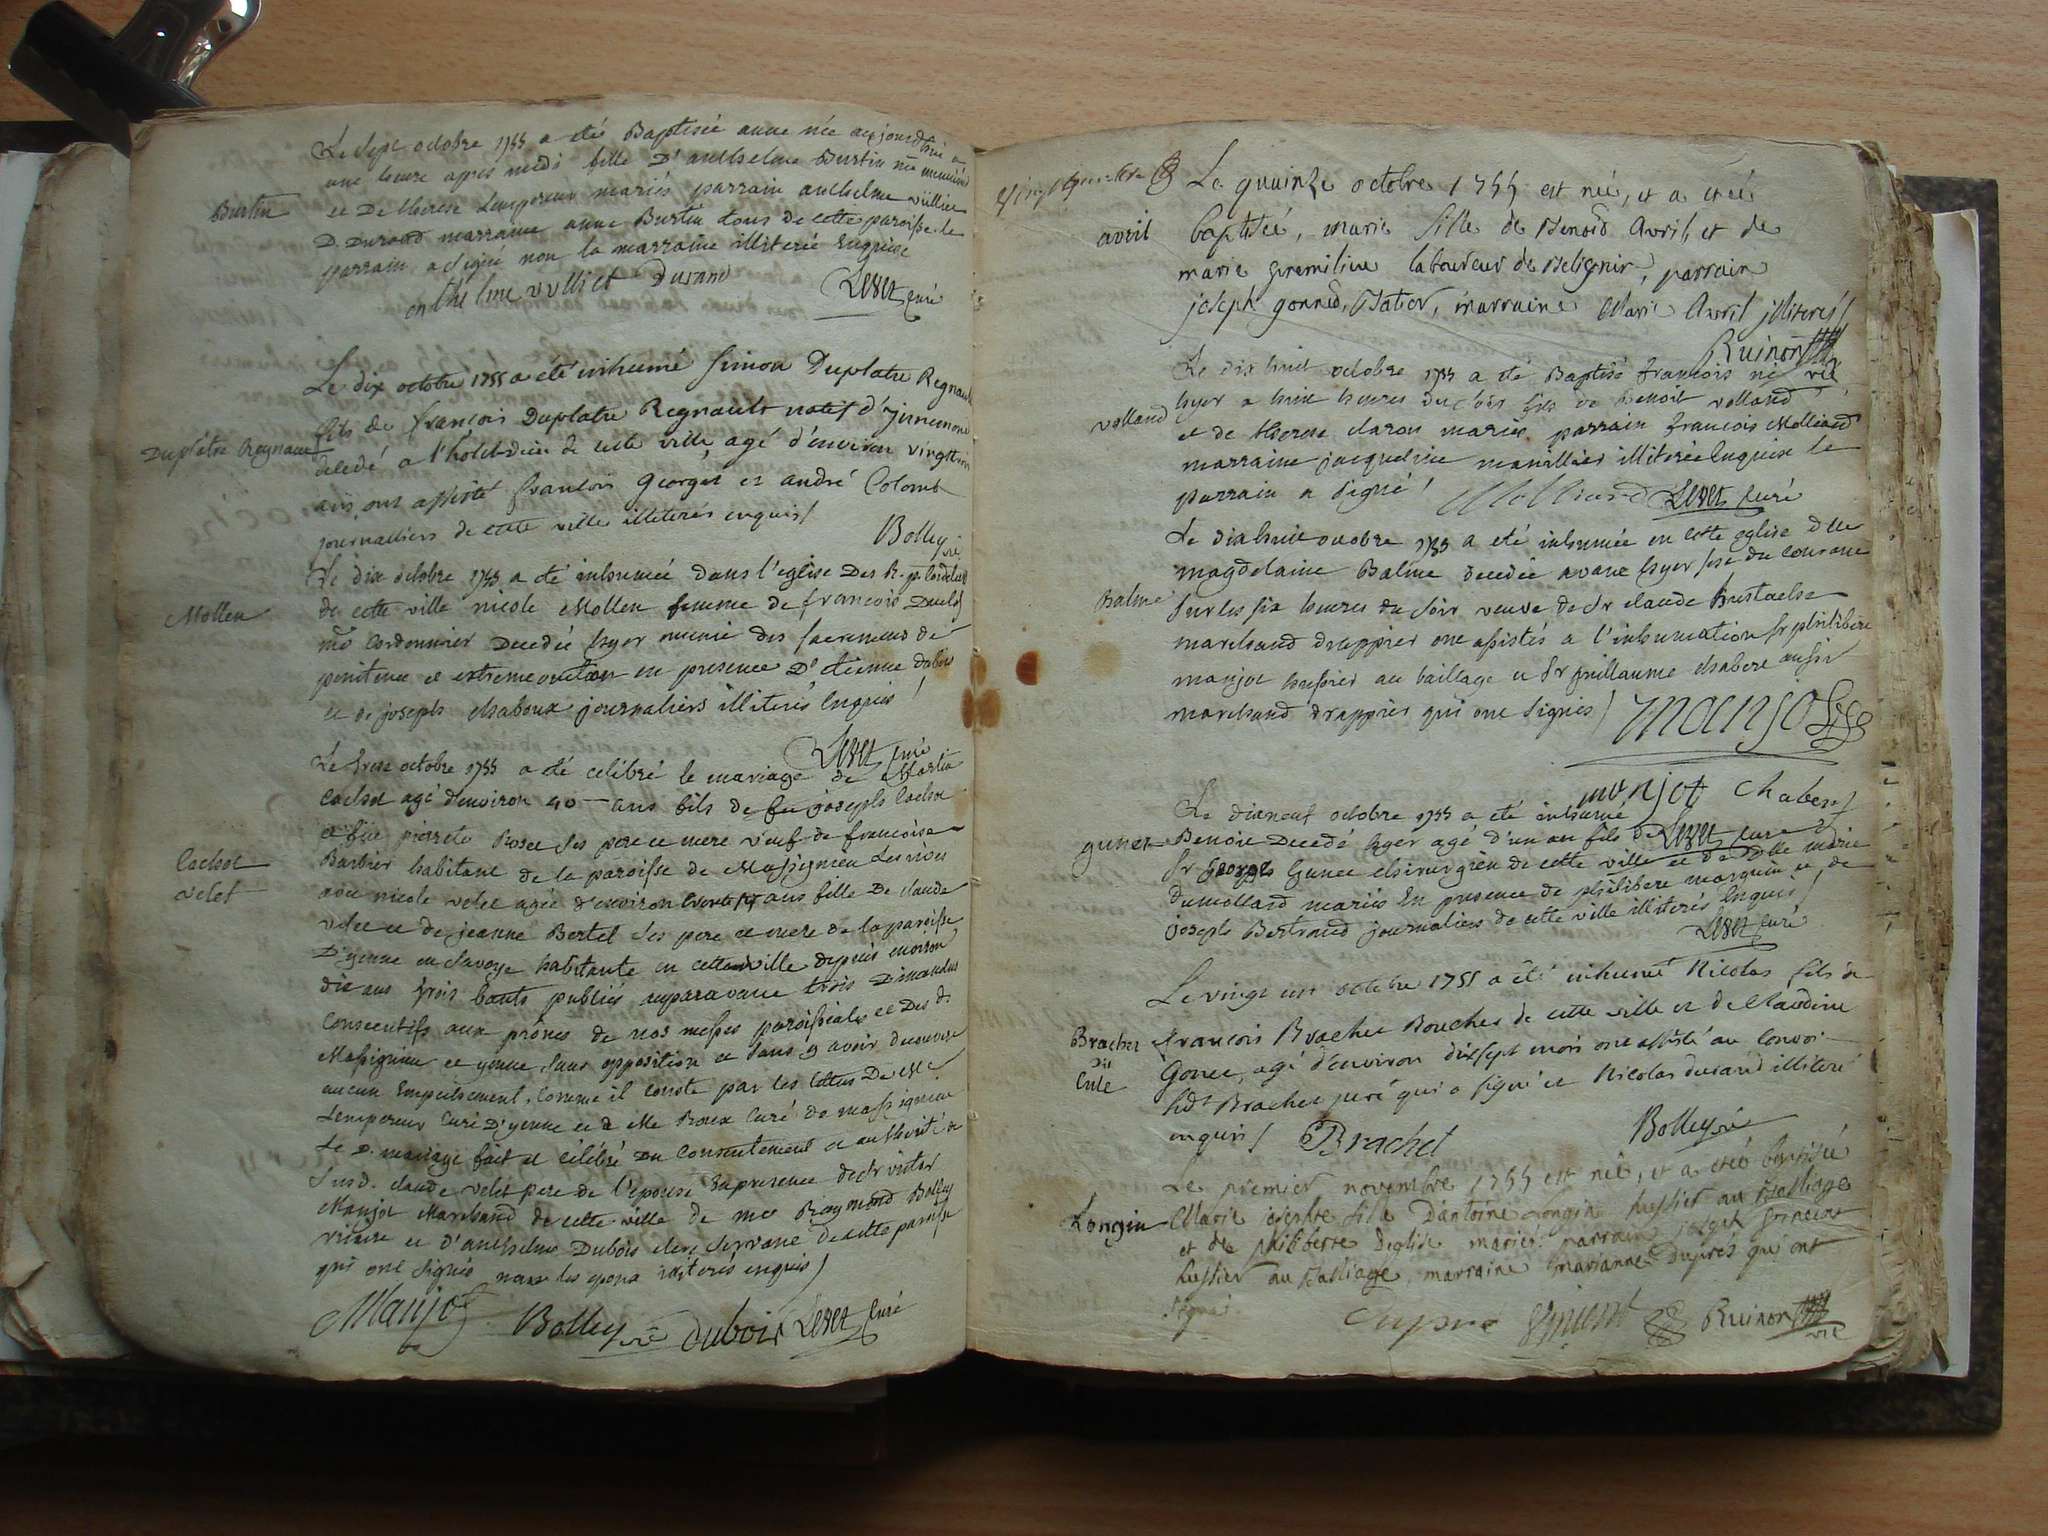 Le sept octobre 1755 a été Baptisée anne née aujourdhui a
une heure apres midi fille D'anthelme Burtin me menuisier
Burtin
et De therese Lempereur mariés parrain anthelme vullier
D. Durand marraine anne Burtin tous de cette paroisse le
parrain a signé non la marraine illiterée Enquise
enthelme vulliet Durand Levet curé
Le dix octobre 1755 a été inhumé simon Duplatre Regnault
fils de françois Duplatre Regnault natif d'
Duplatre Regnault
decedé a l'hotel-dieu de cette ville agé d'environ vingt
ans, ont assisté francois Georget et andré Colomb
journalliers de cette ville illiterés enquis/
Bolley vic
Le dix octobre 1755 a été inhumée dans l'eglise Des R. p. Cordeliers
Mollen
de cette ville nicole Mollen femme de francois
me Cordonnier Decedée hyer munie des sacremens de
penitence et extreme onction en presence D'etienne dubois
et de joseph chaboux journaliers illiterés Enquis/
Levet curé
Le treze octobre 1755 a été celébré le mariage de Martin
Cachot agé d'environ 40 ans fils de feu joseph Cachot
et füe pierrete Roset ses pere et mere veuf de francoise
Cachot
velet
Barbier habitant de la paroisse de Massignieu Les rives
avec nicole velet agée d'environ ans fille De claude
velet et de jeanne Bertet ses pere et mere de la paroisse
D'yenne en Savoye habitante en cette ville depuis environ
dix ans trois bants publiés auparavant trois Dimanches
Consecutifs aux prônes de nos messes paroissiales et Des d.
Massignieu et yenne sans opposition et sans y avoir decouvert
aucun Empechement, Comme il conste par les lettres De Mr
Lempereur Curé D'yenne et de Mr Roux Curé de massignieu
Le D. mariage fait et célébré Du Consentement et authorité de
Susd. claude velet pere de l'epouse En presence de sr victor
Manjot Marchand de cette ville de mre Raymond Bolley
vicaire et d'anthelme Dubois clerc servant de cette paroisse
qui ont signés non les epoux illiterés enquis/
Manjot Bolley vic Dubois Levet Curé
Le quinze octobre 1755 est née, et a etée
avril
baptisée, marie fille de Benoid Avril, et de
marie laboureur de Belignir, parrain
joseph gonned, marraine Marie Avril illiterés/
Ruinon vic
Le dix huit octobre 1755 a été Baptisé francois né
volland
hyer a huit heures du soir fils de Benoit volland
et de therese claron mariés parrain francois Molliard
marraine jacqueline illiterée Enquise le
parrain a signé/ Molliard Levet curé
Le dixhuit octobre 1755 a été inhumée en cette eglise dlle
Balme
magdelaine Balme decedée avant hyer du courant
sur les six heures du soir veuve de sr claude
marchand drappier ont assistés a l'inhumation sr philibert
manjot huissier au baillage et sr guillaume chabert aussi
marchand drappier qui ont signés/ manjot
manjot chabert
Le dixneuf octobre 1755 a été inhumé Levet curé
gunet
Benoit Decedé hyer agé d'un an fils de
sr George Gunet chirurgien de cette ville et de dlle marie
Dumollard mariés En presence de philibert et de
joseph Bertrand journaliers de cette ville illiterés Enquis/
Levet curé
Le vingt un octobre 1755 a été inhumé Nicolas fils de
Brachet
dit
Cule
francois Brachet Boucher de cette ville et de Claudine
Gonet, agé d'environ dixsept mois ont assisté au convoi
ledt Brachet pere qui a signé et Nicolas durand illiteré
enquis/ Brachet Bolley vic
Le premier novembre 1755 est née, et a etée baptisée
Longin
Marie josephte fille D'antoine Longin huissier au Balliage
et de philiberte Deglise mariés: parrain joseph
huissier au Balliage, marraine marianne Dupres qui ont
signés. Dupré Ruinon vic